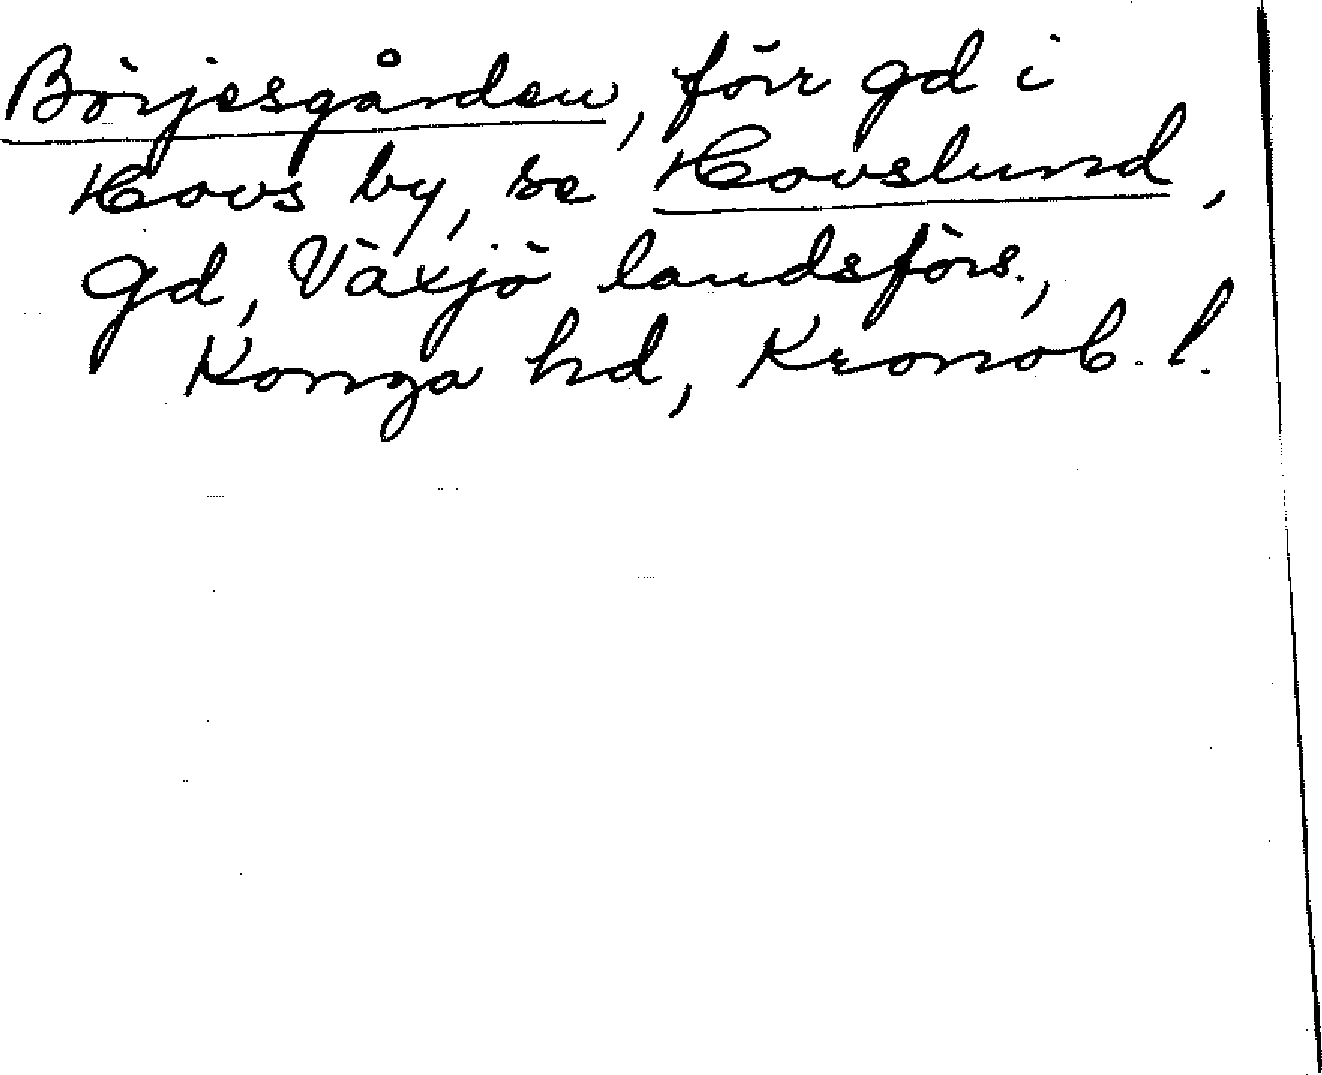 Börjesgården, förr gd i
Hovs by, se Hovslund,
gd, Växjö landsförs.,
Konga hd, Kronob. l.